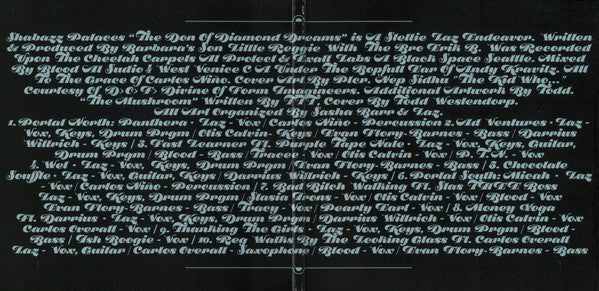 Shabazz Palaces "The Don Of Diamond Dreams" is A Stellie Laz Endeavor. Written
& Produced By Barbara's Son Little Reggie With The Bro Erik B. Was Recorded
Upon The Cheetah Carpets At Protect & Exalt Labs A Black Space Seattle. Mixed
By Blood At Studio 4 West Venice CA Under The Boopful Ear Of Andy Kravitz. All
To The Grace of Carlos Niño. Cover Art By Pler. Nep Sidu "The Kid Who..."
Courtesy Of D.O.F. Divine Of Form Imagineers. Additional Artwork By Todd.
"The Mushroom" Written By TTT, Cover By Todd Westendorp.
All Art Organized By Sasha Barr & Laz.
1. Portal North: Panthera - Laz - Vox / Carlos Niño - Percussion 2. Ad Ventures - Laz -
Vox, Keys, Drum Prgm / Otis Calvin - Keys / Evan Flory-Barnes - Bass / Darrius
Willrich - Keys / 3. Fast Learner Ft. Purple Tape Nate - Laz - Vox, Keys, Guitar,
Drum Prgm / Blood - Bass / Tracee - Vox / Otis Calvin - Vox / P.T.N. - Vox
4. Wet - Laz - Vox, Keys, Drum Prgm / Evan Flory-Barnes - Bass / 5. Chocolate
Souffle - Laz - Vox, Guitar, Keys / Darrius Willrich - Keys / 6. Portal South: Micah - Laz
- Vox / Carlos Niño - Percussion / 7. Bad Bitch Walking Ft. Stas THEE Boss
Laz - Vox, Keys, Drum Prgm / Stasia Irons - Vox / Otis Calvin - Vox / Blood - Vox
Evan Flory-Barnes - Bass / Tracy - Vox / Pearly Earl - Vox / 8. Money Yoga
Ft. Darrius - Laz - Vox, Keys, Drum Prgm / Darrius Willrich - Vox / Otis Calvin - Vox
Carlos Overall - Vox / 9. Thanking The Girls - Laz - Vox, Keys, Drum Prgm / Blood -
Bass / Ish Boogie - Vox / 10. Reg Walks By The Looking Glass Ft. Carlos Overall
Laz - Vox, Guitar / Carlos Overall - Saxophone / Blood - Vox / Evan Flory-Barnes - Bass